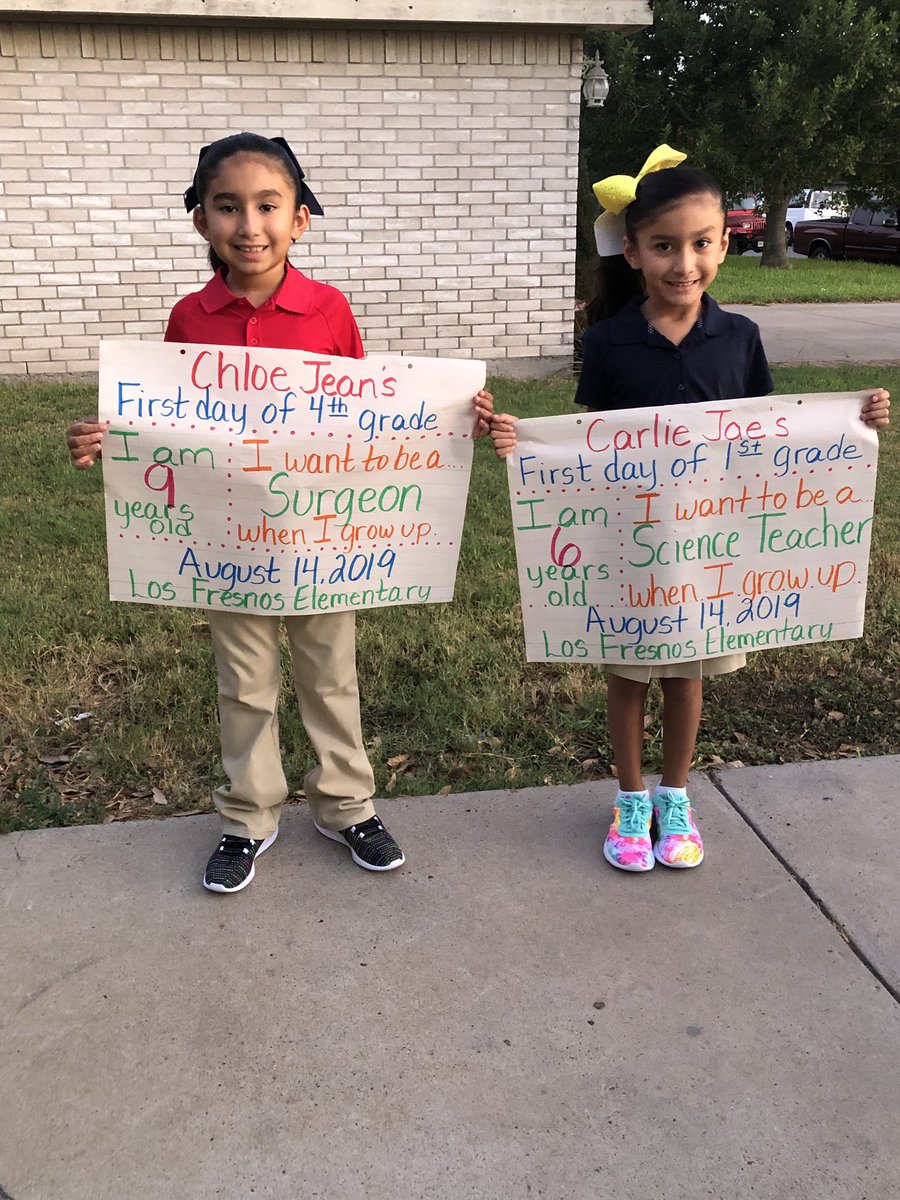 Chloe Jean's
First day of 4th grade
I am
9
years
old
I want to be a...
Surgeon
when I grow up.
August 14, 2019
Los Fresnos Elementary
Carlie Jae's
First day of 1st grade
I am
6
years
old
I want to be a...
Science Teacher
when I grow up.
August 14, 2019
Los Fresnos Elementary